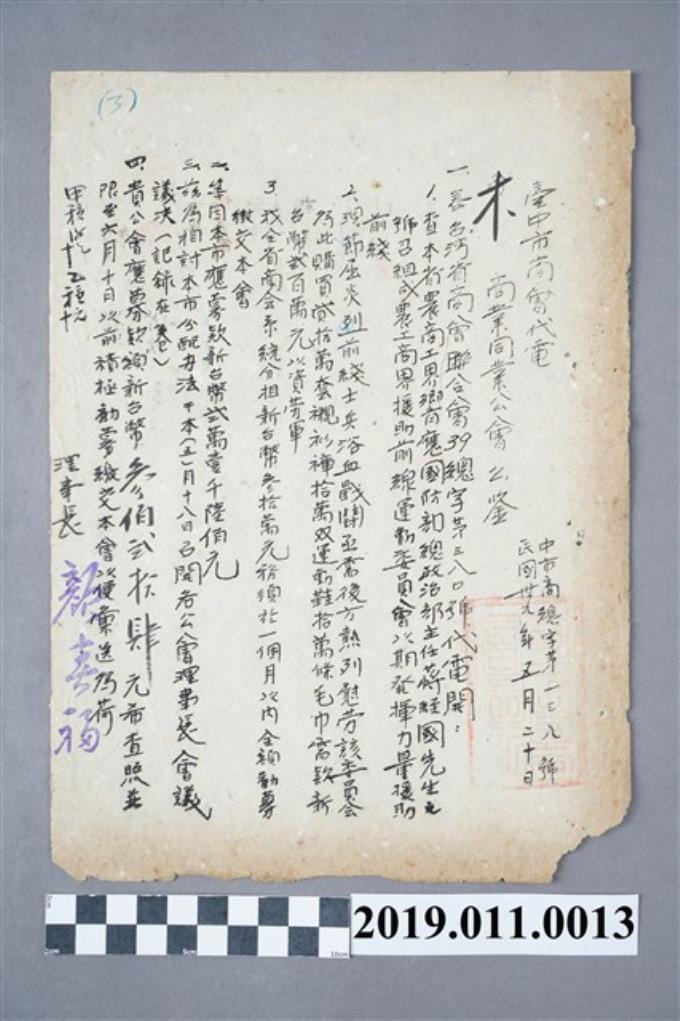 (3)
臺中市商會代電
中市商總字第一三八號
民國卅九年五月二十日
木 商業同業公會公鑒
一、案台灣省商會聯合會39總字第三八〇號代電開：
1.查本省農商工界鄉有應國防部總政治部主任蔣經國先生之
號召組成農工商界援助前線運動委員會以期發揮力量援助
前綫
2.現節屆炎列前綫士兵浴血戰鬪亟需後方熱列慰勞該委員會
為此購買貳拾萬套襯衫褲拾萬双運動鞋拾萬條毛巾需款新
台幣貳百萬元以資勞軍
3.我全省商会系統分担新台幣叁拾萬元務須於一個月以內全額勸募
繳交本會
二、等因本市應募款新台幣弍萬壹千陸佰元
三、茲為相討本市分配办法于本(五)月十八日召開各公會理事長會議
議決(記錄在卷)
四、貴公會應募款額新台幣叁佰弍拾肆元希查照並
限至六月十日以前積極勸募繳交本會以便彙送為荷
甲種 十 乙種
理事長 顏春福
2019.011.0013